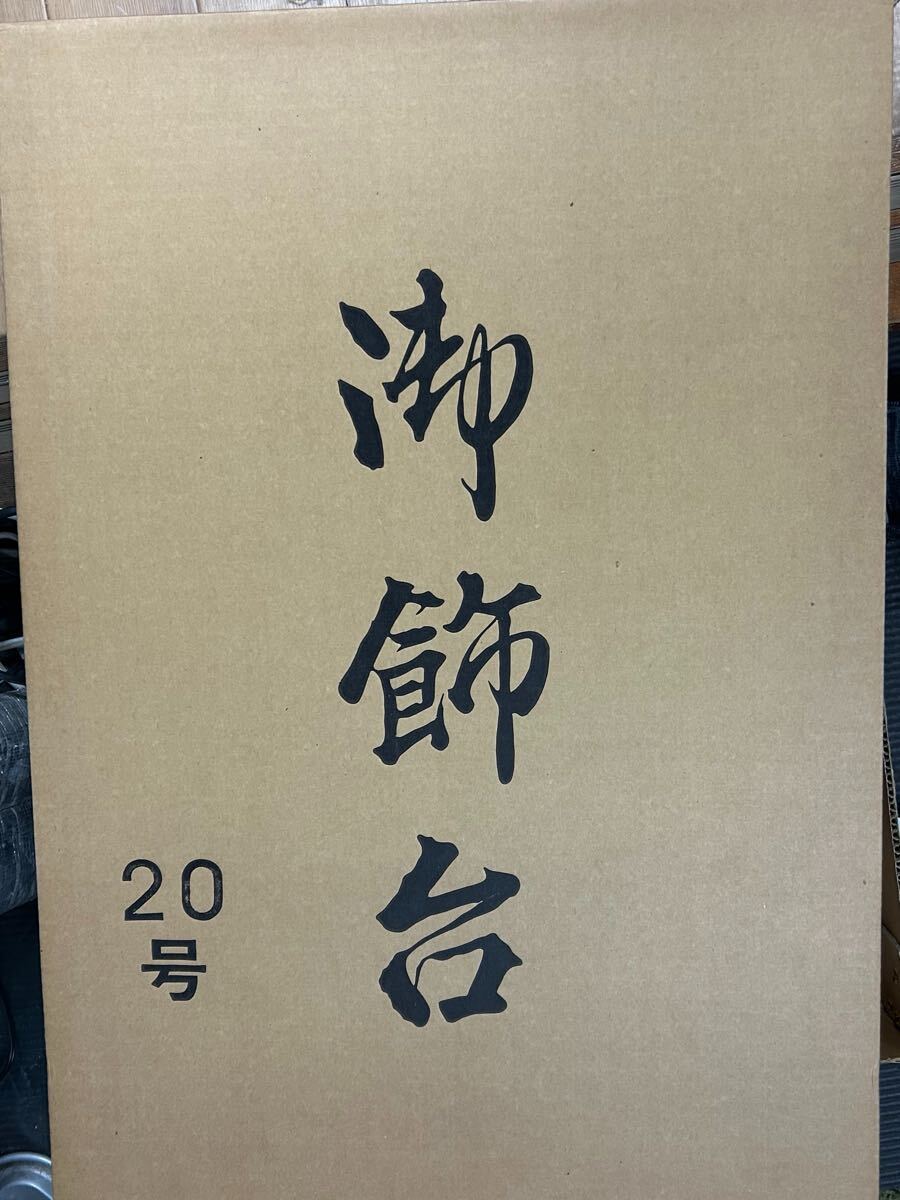 御飾台
20
号